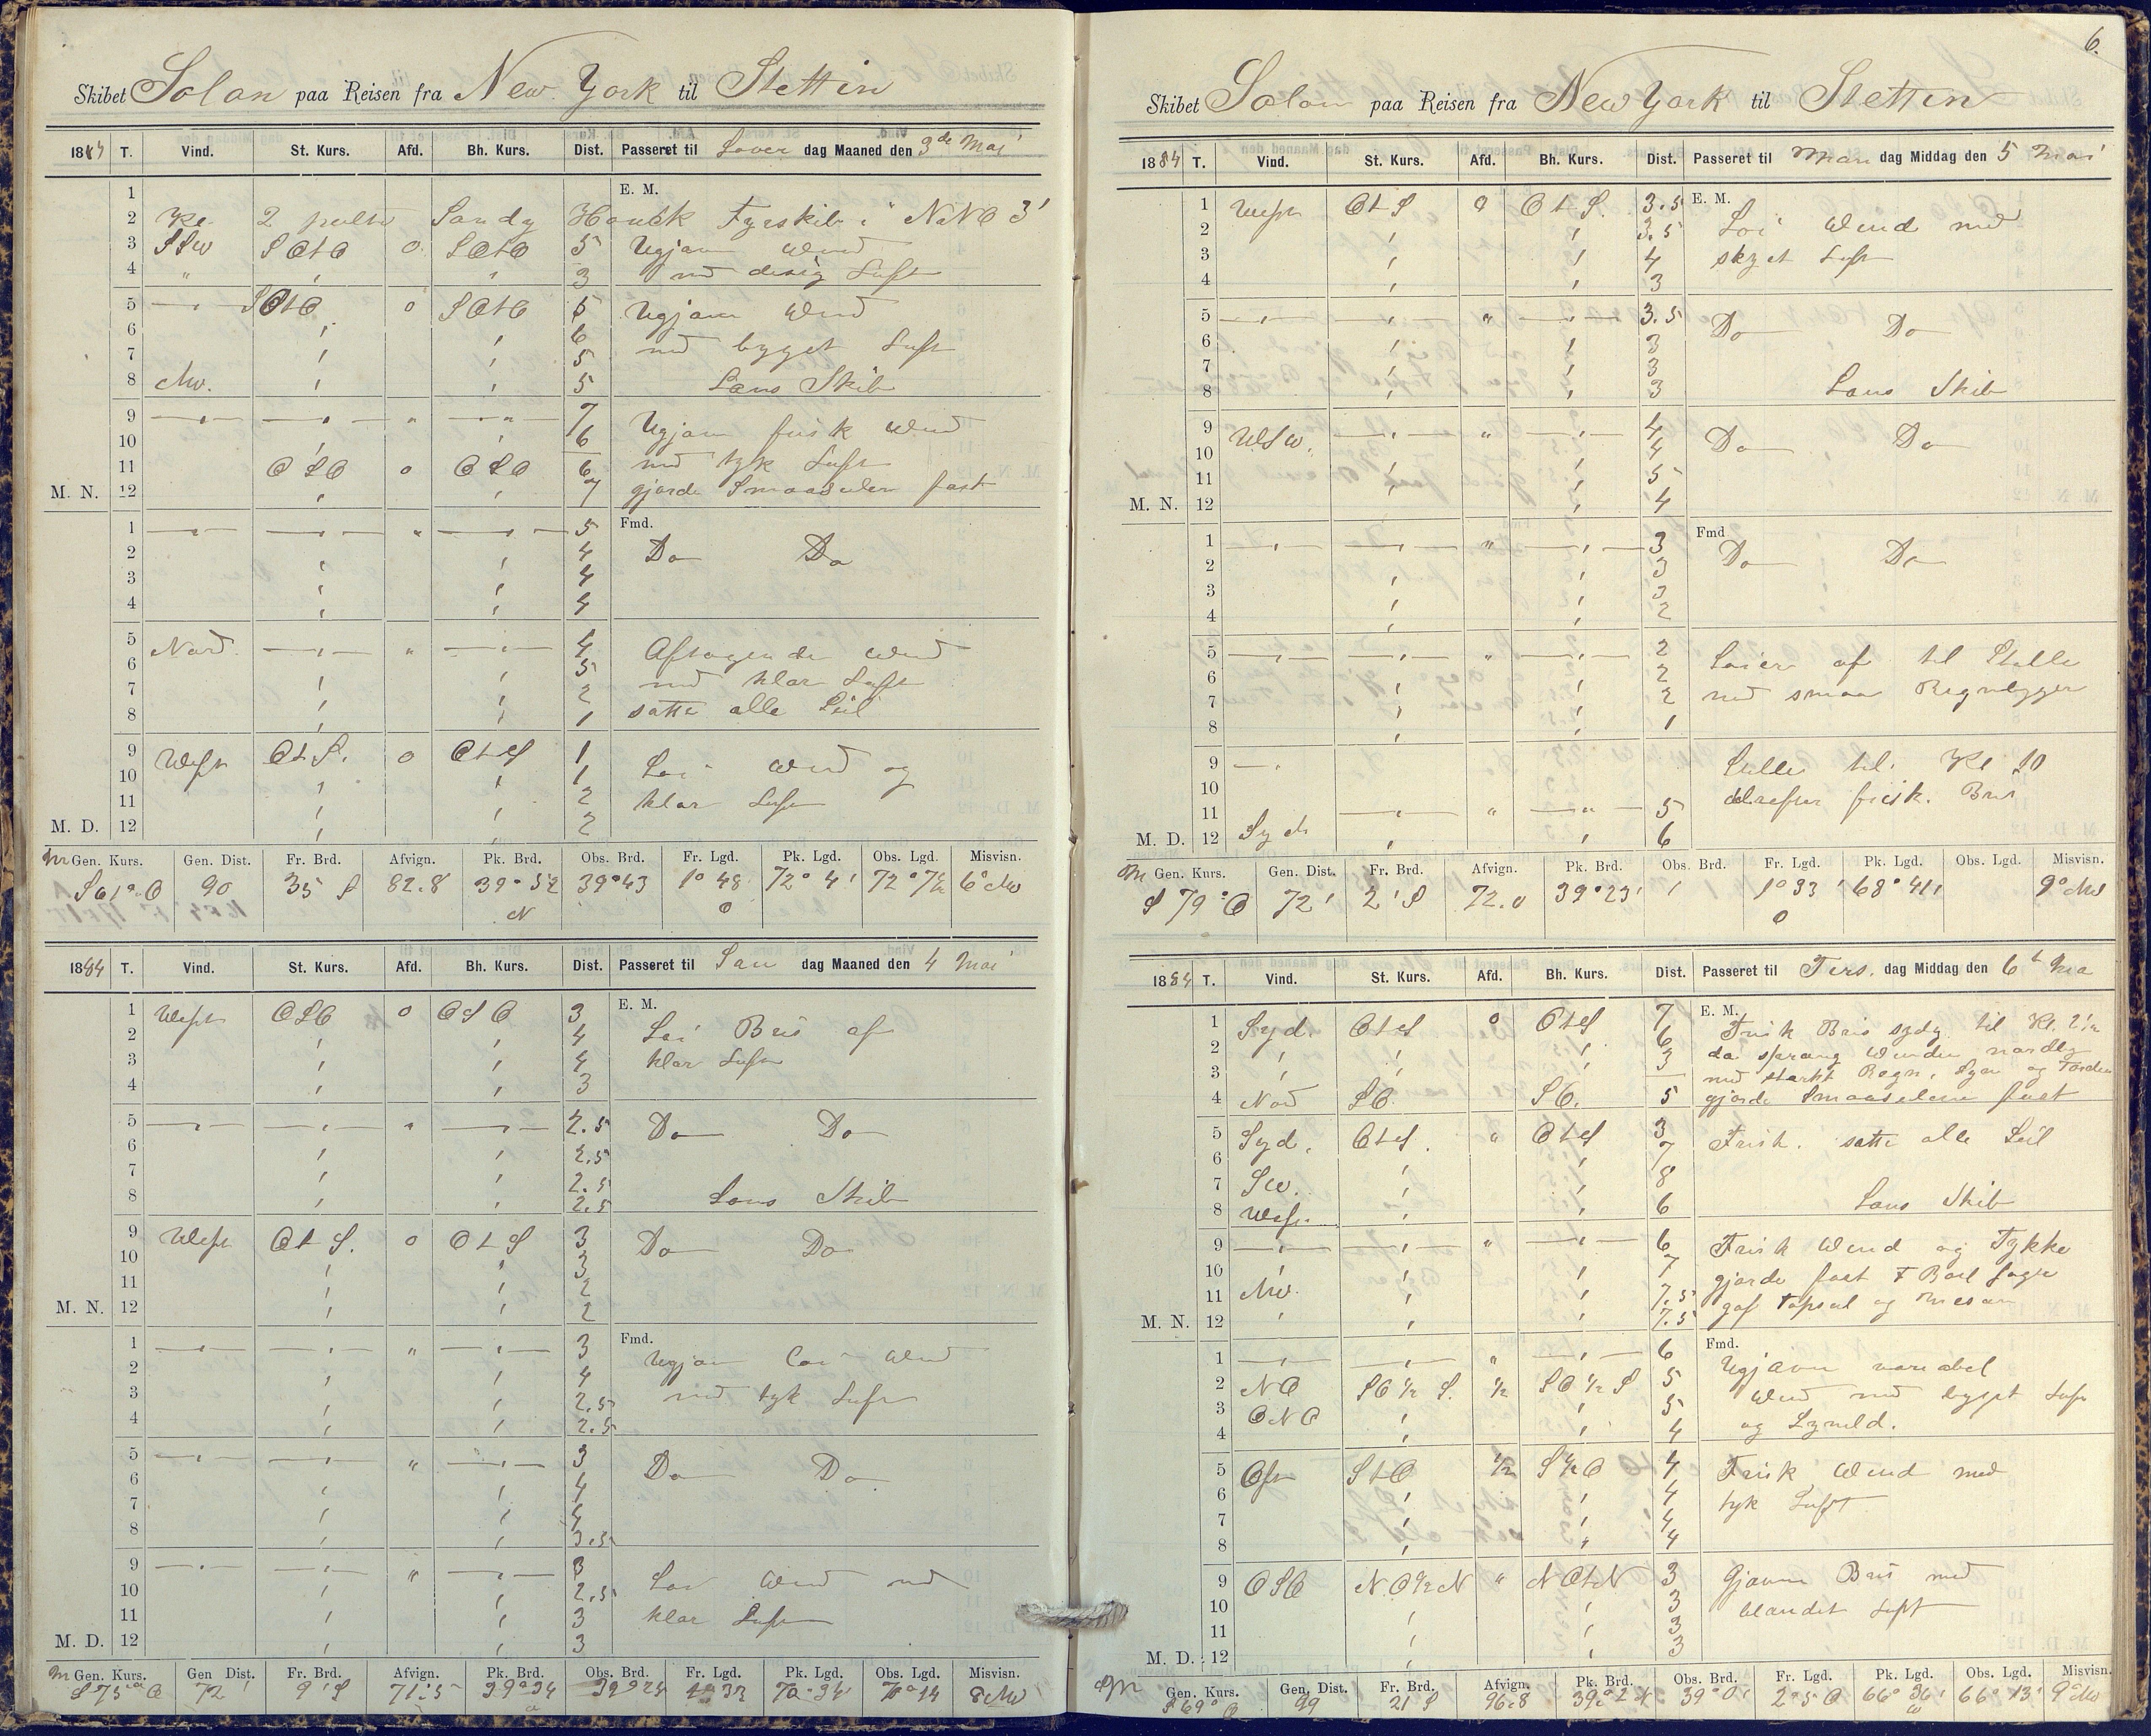 6.
Skibet Solon paa Reisen fra New York til Stettin
1884 T. Vind. St. Kurs. Afd. Bh. Kurs. Dist. Passeret til Löver dag Maaned den 3de Mai
1 E. M.
2 Kl. 2 peilte Sandy Houck Fyrskib i NNO 3'
3 SSW SOtO 0 SOtO 5 Ugjævn Wind
4 " ' ' 3 md disig Luft
5 — SOtO 0 SOtO 5 Ugjævn Wind
6 ' ' 6
7 ' ' 5 md bygget Luft
8 NW. ' ' 5 Læns Skib
9 — — " — 7 Ugjævn frisk Wind
10 ' 6
11 OSO 0 OSO 6 md tyk Luft
M. N. 12 ' ' 7 gjorde Smaaseilen fast
1 — — " — 5 Fmd. Do Do
2 ' ' 4
3 ' ' 4
4 ' ' 4
5 Nord. — " — 4 Aftagende Wind
6 5
7 ' ' 2 md klar Luft
8 ' ' 1 satte alle Seil
9 West OtS. 0 OtS 1 Löi Wind og
10 ' ' 1
11 ' ' 2 klar Luft
M. D. 12 ' 2
Gen. Kurs. Gen. Dist. Fr. Brd. Afvign. Pk. Brd. Obs. Brd. Fr. Lgd. Pk. Lgd. Obs. Lgd. Misvisn.
S 61° O 90 35 S 82.8 39° 52 N 39°43 1° 48 O 72° 4' 72° 7 6° NW
1884 T. Vind. St. Kurs. Afd. Bh. Kurs. Dist. Passeret til Søn dag Maaned den 4 Mai
1 West OSO 0 OSO 3 E. M.
2 ' ' 4 Löi Bris af
3 ' ' 4 klar Luft
4 ' ' 3
5 — — " — 2.5 Do Do
6 ' ' 2.5
7 ' ' 2.5
8 ' ' 2.5 Læns Skib
9 West OtS. 0 OtS 3 Do Do
10 ' ' 3
11 ' ' 2
M. N. 12 ' ' 2
1 — — " — 3 Fmd. Ugjævn löi Wind
2 ' ' 4
3 ' ' 2.5 md tyk Luft
4 ' ' 2.5
5 — — " — 3 Do Do
6 ' ' 4
7 ' ' 4
8 ' ' 3.5
9 — — " — 3 Löi Wind md
10 ' ' 2.5
11 ' ' 3 klar Luft
M. D. 12 ' ' 3
Gen. Kurs. Gen Dist. Fr. Brd. Afvign. Pk. Brd. Obs. Brd. Fr. Lgd. Pk. Lgd. Obs. Lgd. Misvisn.
S 75° O 72' 9' S 71.5 39°34 39°25 1° 33 70°34' 70°14 8 NW
Skibet Solon paa Reisen fra New York til Stettin
1884 T. Vind. St. Kurs. Afd. Bh. Kurs. Dist. Passeret til Man dag Middag den 5 Mai
1 West OtS 0 OtS. 3.5 E. M.
2 ' ' 3.5 Löi Wind md
3 ' ' 4 skyet Luft
4 ' ' 3
5 — ' " — 3.5 Do Do
6 ' ' 3
7 ' ' 3
8 ' ' 3 Læns Skib
9 WSW. — " — 4 Do Do
10 ' ' 4
11 ' ' 5
M. N. 12 ' 4
1 — — " — 3 Fmd Do Do
2 ' ' 3
3 ' ' 3
4 ' ' 2
5 — — " — 2 Löier af til Stille
6 ' ' 2
7 ' ' 2 md smaa Regnbyger
8 ' ' 1
9 — Stille til Kl 10
10 derefter frisk. Bris
11 — " — 5
M. D. 12 Syd ' ' 6
Gen. Kurs. Gen. Dist. Fr. Brd. Afvign. Pk. Brd. Obs. Brd. Fr. Lgd. Pk. Lgd. Obs. Lgd. Misvisn.
S 79° O 72' 2' S 72.0 39°23' 1° 33' O 68° 41' 9° NW
1884 T. Vind. St. Kurs. Afd. Bh. Kurs. Dist. Passeret til Tirs. dag Middag den 6t Ma
1 Syd. OtS 0 OtS 7 E. M. Frisk Bris sydlig til Kl. 2½
2 ' ' ' 6 da sprang Winden nordlig
3 ' ' ' 3 md stærkt Regn, Lyn og Torden
4 Nod SO. SO. 5 gjorde Smaaseilene fast
5 Syd. OtS. " OtS 3 Frisk. satte alle Seil
6 ' ' 7
7 SW. ' ' 8
8 West. ' ' 6 Læns Skib
9 — — " — 6 Frisk Wind og Tykke
10 ' ' 7 gjorde fast
11 NW. ' ' 7.5
M. N. 12 ' ' ' 7.5 Topseil og Mesan
1 — — " — 6 Fmd. Ugjævn variabel
2 NO SO½S. ½ SO½S 5 Wind md bygget Luft
3 ONO ' ' 5
4 ' 4 og Lynild.
5 Ost StO ½ S½O 4 Frisk Wind med
6 ' ' 4 tyk Luft
7 ' ' 4
8 ' ' 4
9 OSO NO½N " NOtN 3 Gjævn Bris med
10 ' ' 3 blandet Luft
11 ' ' 3
M. D. 12 ' ' 3
Gen. Kurs. Gen. Dist. Fr. Brd. Afvign. Pk. Brd. Obs. Brd. Fr. Lgd. Pk. Lgd. Obs. Lgd. Misvisn.
S 69° O 99 21 S 96.8 39° 2 N 39° 0' 2° 5 O 66° 36' W 66° 13' 9° NW